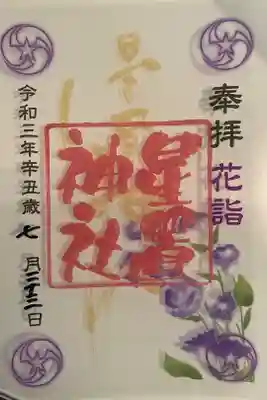 奉拝 花詣
星置
神社
令和三年辛丑歳 七月二十二日